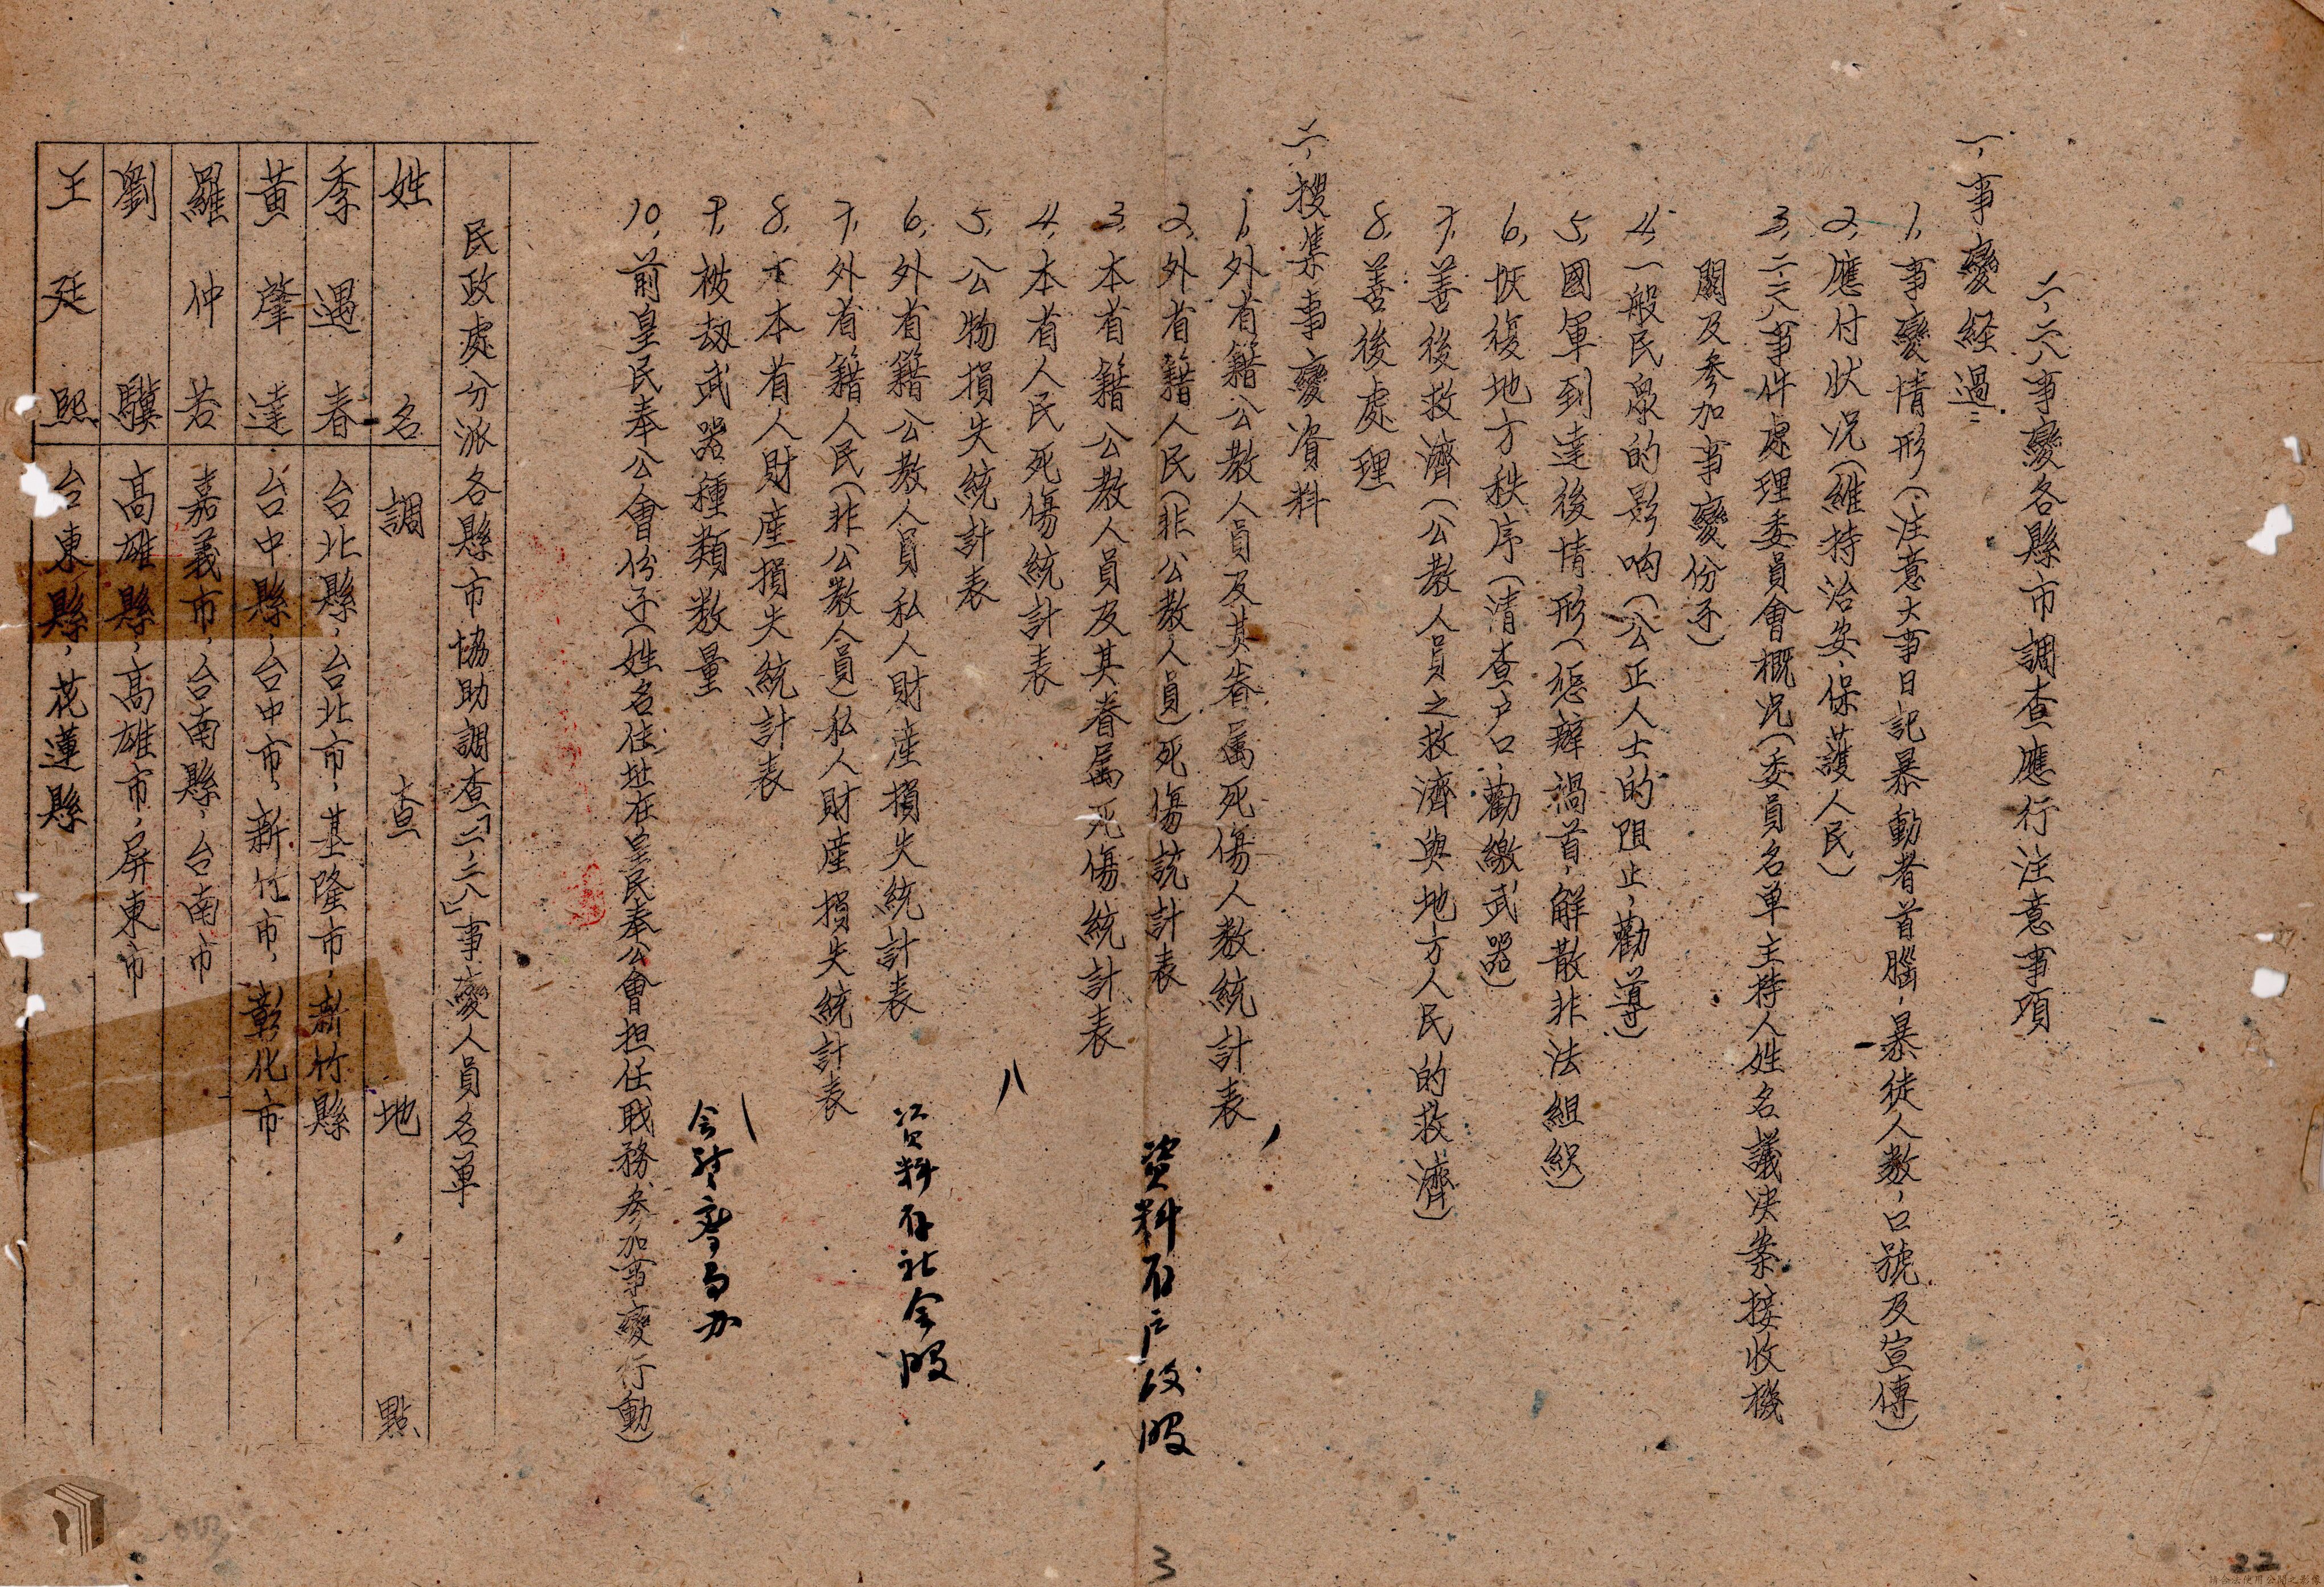 二、二八事變各縣市調查應行注意事項
一、事變経過：
1、事變情形（注意大事日記暴動者首腦，暴徒人数，口號及宣傳）
2、應付状况（維持治安，保護人民）
3、二二八事件處理委員會概况（委員名单主持人姓名議决案接收機
関及参加事變份子）
4、一般民衆的影响（公正人士的阻止，勸導）
5、國軍到達後情形（惩辦禍首，解散非法組織）
6、恢復地方秩序（清查户口，勸繳武器）
7、善後救濟（公教人員之救濟與地方人民的救濟）
8、善後處理
二、搜集事變資料
1、外省籍公教人員及其眷属死傷人数統計表
2、外省籍人民（非公教人員）死傷統計表
3、本省籍公教人員及其眷属死傷統計表
4、本省人民死傷統計表
5、公物損失統計表
6、外省籍公教人員私人財産損失統計表
7、外省籍人民（非公教人員）私人財産損失統計表
8、本省人財産損失統計表
9、被刼武器種類数量
10、前皇民奉公會份子（姓名住址在皇民奉公會担任職務参加事變行動）
資料存户政股
資料存社会股
会警察局办
民政處分派各縣市協助調查「二、二八」事變人員名单
姓名 調查地點
季遇春 台北縣，台北市，基隆市，新竹縣
黄肇達 台中縣，台中市，新竹市，彰化市
羅仲若 嘉義市，台南縣，台南市
劉驥 高雄縣，高雄市，屏東市
王廷熙 台東縣，花蓮縣
3
22